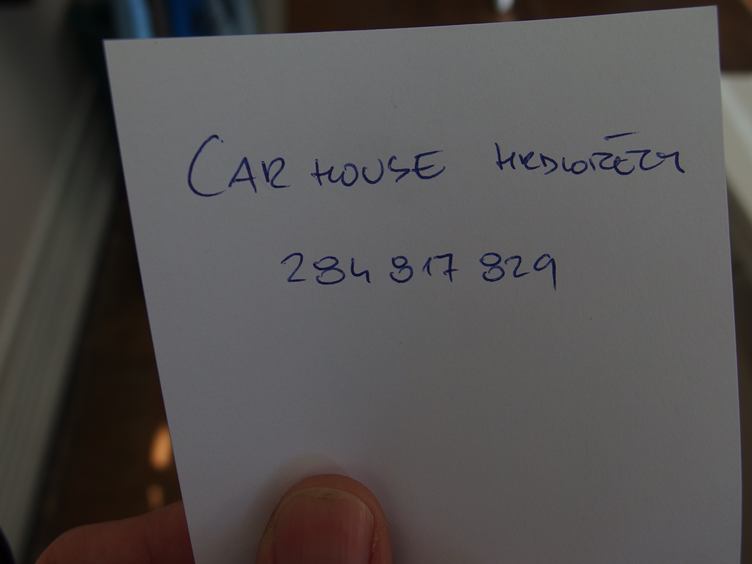 CAR HOUSE HRDLOŘEZY
284 817 829